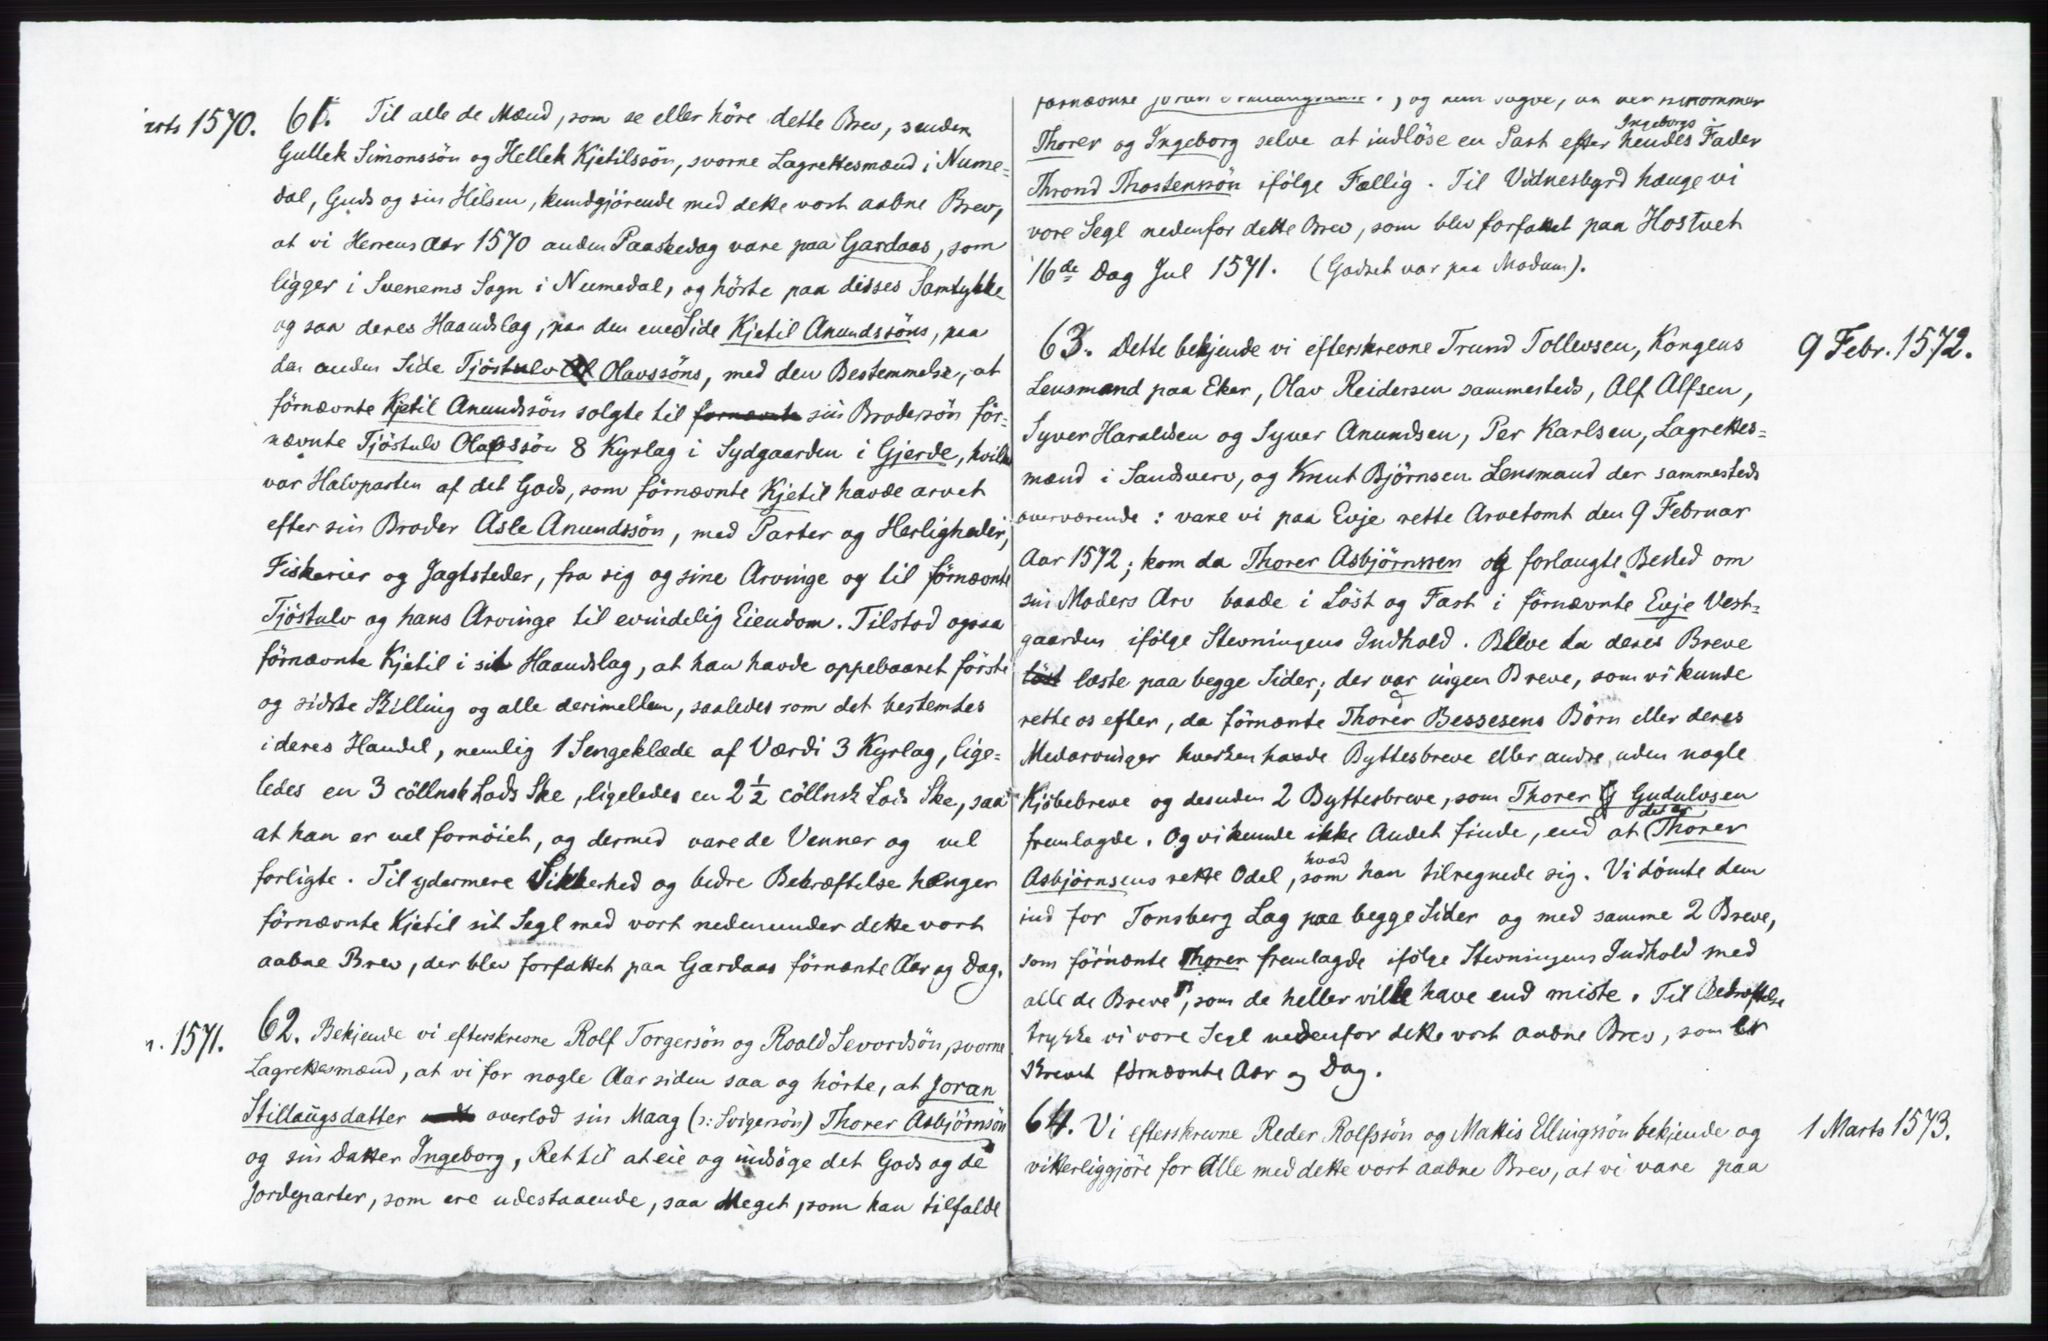 1570. 61. Til alle de Mænd, som se eller höre dette Brev, sender
Gullek Simonssön og Hellek Kjetilssön, svorne Lagrettesmænd i Nume-
dal, Guds og sin Hilsen, kundgjörende med dette vort aabne Brev,
at vi Herrens Aar 1570 anden Paaskedag vare paa Gardaas, som
ligger i Svenems Sogn i Numedal, og hörte paa disses Samtykke
og saa deres Haandslag, paa den ene Side Kjetil Anundssöns, paa
den anden Side Tjöstulv Olavssöns, med den Bestemmelse, at
förnævnte Kjetil Anundssön solgte til fornævnte sin Brodersön för-
nævnte Tjöstulv Olafssön 8 Kyrlag i Sydgaarden i Gjerde, hvilket
var Halvparten af det Gods, som förnævnte Kjetil havde arvet
efter sin Broder Asle Anundssön, med Parter og Herligheder,
Fiskerier og Jagtsteder, fra sig og sine Arvinge og til förnævnte
Tjöstulv og hans Arvinge til evindelig Eiendom. Tilstod ogsaa
förnævnte Kjetil i sit Haandslag, at han havde oppebaaret förste
og sidste Skilling og alle derimellem, saaledes som det bestemtes
i deres Handel, nemlig 1 Sengeklæde af Værdi 3 Kyrlag, lige-
ledes en 3 cöllnsk Lods Ske, ligeledes en 2 1/2 cöllnsk Lods Ske, saa
at han er vel fornöiet, og dermed vare de Venner og vel
forligte. Til ydermere Sikkerhed og bedre Bekræftelse hænger
förnævnte Kjetil sit Segl med vort nedenunder dette vort
aabne Brev, der blev forfattet paa Gardaas förnævnte Aar og Dag.
1571. 62. Bekjende vi efterskrevne Rolf Torgersön og Roald Sevordsön, svorne
Lagrettesmænd, at vi for nogle Aar siden saa og hörte, at Joran
Stillaugsdatter overlod sin Maag (ɔ: Svigersön) Thorer Asbjörnsön
og sin Datter Ingeborg, Ret til at eie og indsöge det Gods og de
Jordeparter, som ere udestaaende, saa Meget, som han tilfalde
Thorer og Ingeborg selve at indlöse en Part efter Ingeborgs hendes Fader
Thrond Thostenssön ifölge Fællig. Til Vidnesbyrd hænge vi
vore Segl nedenfor dette Brev, som blev forfattet paa Hostvet
16de Dag Jul 1571. (Godset var paa Modum).
63. Dette bekjende vi efterskrevne Trund Tollevsen, Kongens 9 Febr. 1572.
Lensmand paa Eker, Olav Reidersen sammesteds, Alf Alfsen,
Syver Haraldsen og Syver Anundsen, Per Karlsen, Lagrettes-
mænd i Sandsverv, og Knut Björnsen Lensmand der sammesteds
overværende: vare vi paa Evje rette Arvetomt den 9 Februar
Aar 1572; kom da Thorer Asbjörnssen og forlangte Besked om
sin Moders Arv baade i Löst og Fast i förnævnte Evje Vest-
gaarden ifölge Stevningens Indhold. Bleve da deres Breve
löst læste paa begge Sider; der var ingen Breve, som vi kunde
rette os efter, da förnænte Thorer Bessesens Börn eller deres
Medarvinger hverken havde Byttesbreve eller andre, uden nogle
Kjöbebreve og desuden 2 Byttesbreve, som Thorer Gudulvsen
fremlagde. Og vi kunde ikke Andet finde, end at det er Thorer
Asbjörnsens rette Odel, hvad som han tilregnede sig. Vi dömte dem
ind for Tonsberg Lag paa begge Sider og med samme 2 Breve,
som förnænte Thorer fremlagde ifölge Stevningens Indhold med
alle de Breve, som de heller ville have end miste. Til Bekræftelse
trykke vi vore Segl nedenfor dette vort aabne Brev, som er
Skrevet förnævnte Aar og Dag.
64. Vi efterskrevne Reder Rolfssön og Mattis Ellingssön bekjende og 1 Marts 1573.
vitterliggjöre for Alle med dette vort aabne Brev, at vi vare paa